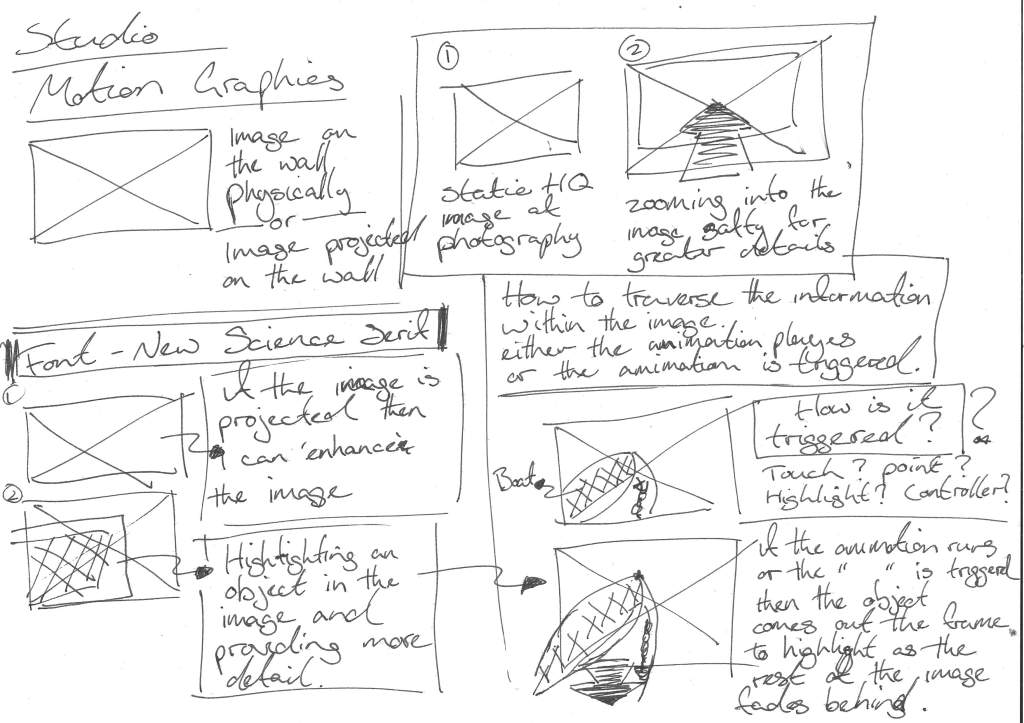 Studio
Motion Graphics
Image on
the wall
physically
or
Image projected
on the wall
1
static HQ
image of
photography
2
zooming into the
image safty for
greater details
How to traverse the information
within the image.
either the animation playes
or the animation is triggered.
Font - New Science Serif
1
if the image is
projected then
I can enhance
the image
2
Highlighting an
object in the
image and
providing more
detail.
Boat
How is it
triggered?
?
Touch? point?
Highlight? Controller?
if the animation runs
or the " " is triggered
then the object
comes out the frame
to highlight as the
rest of the image
fades behind.